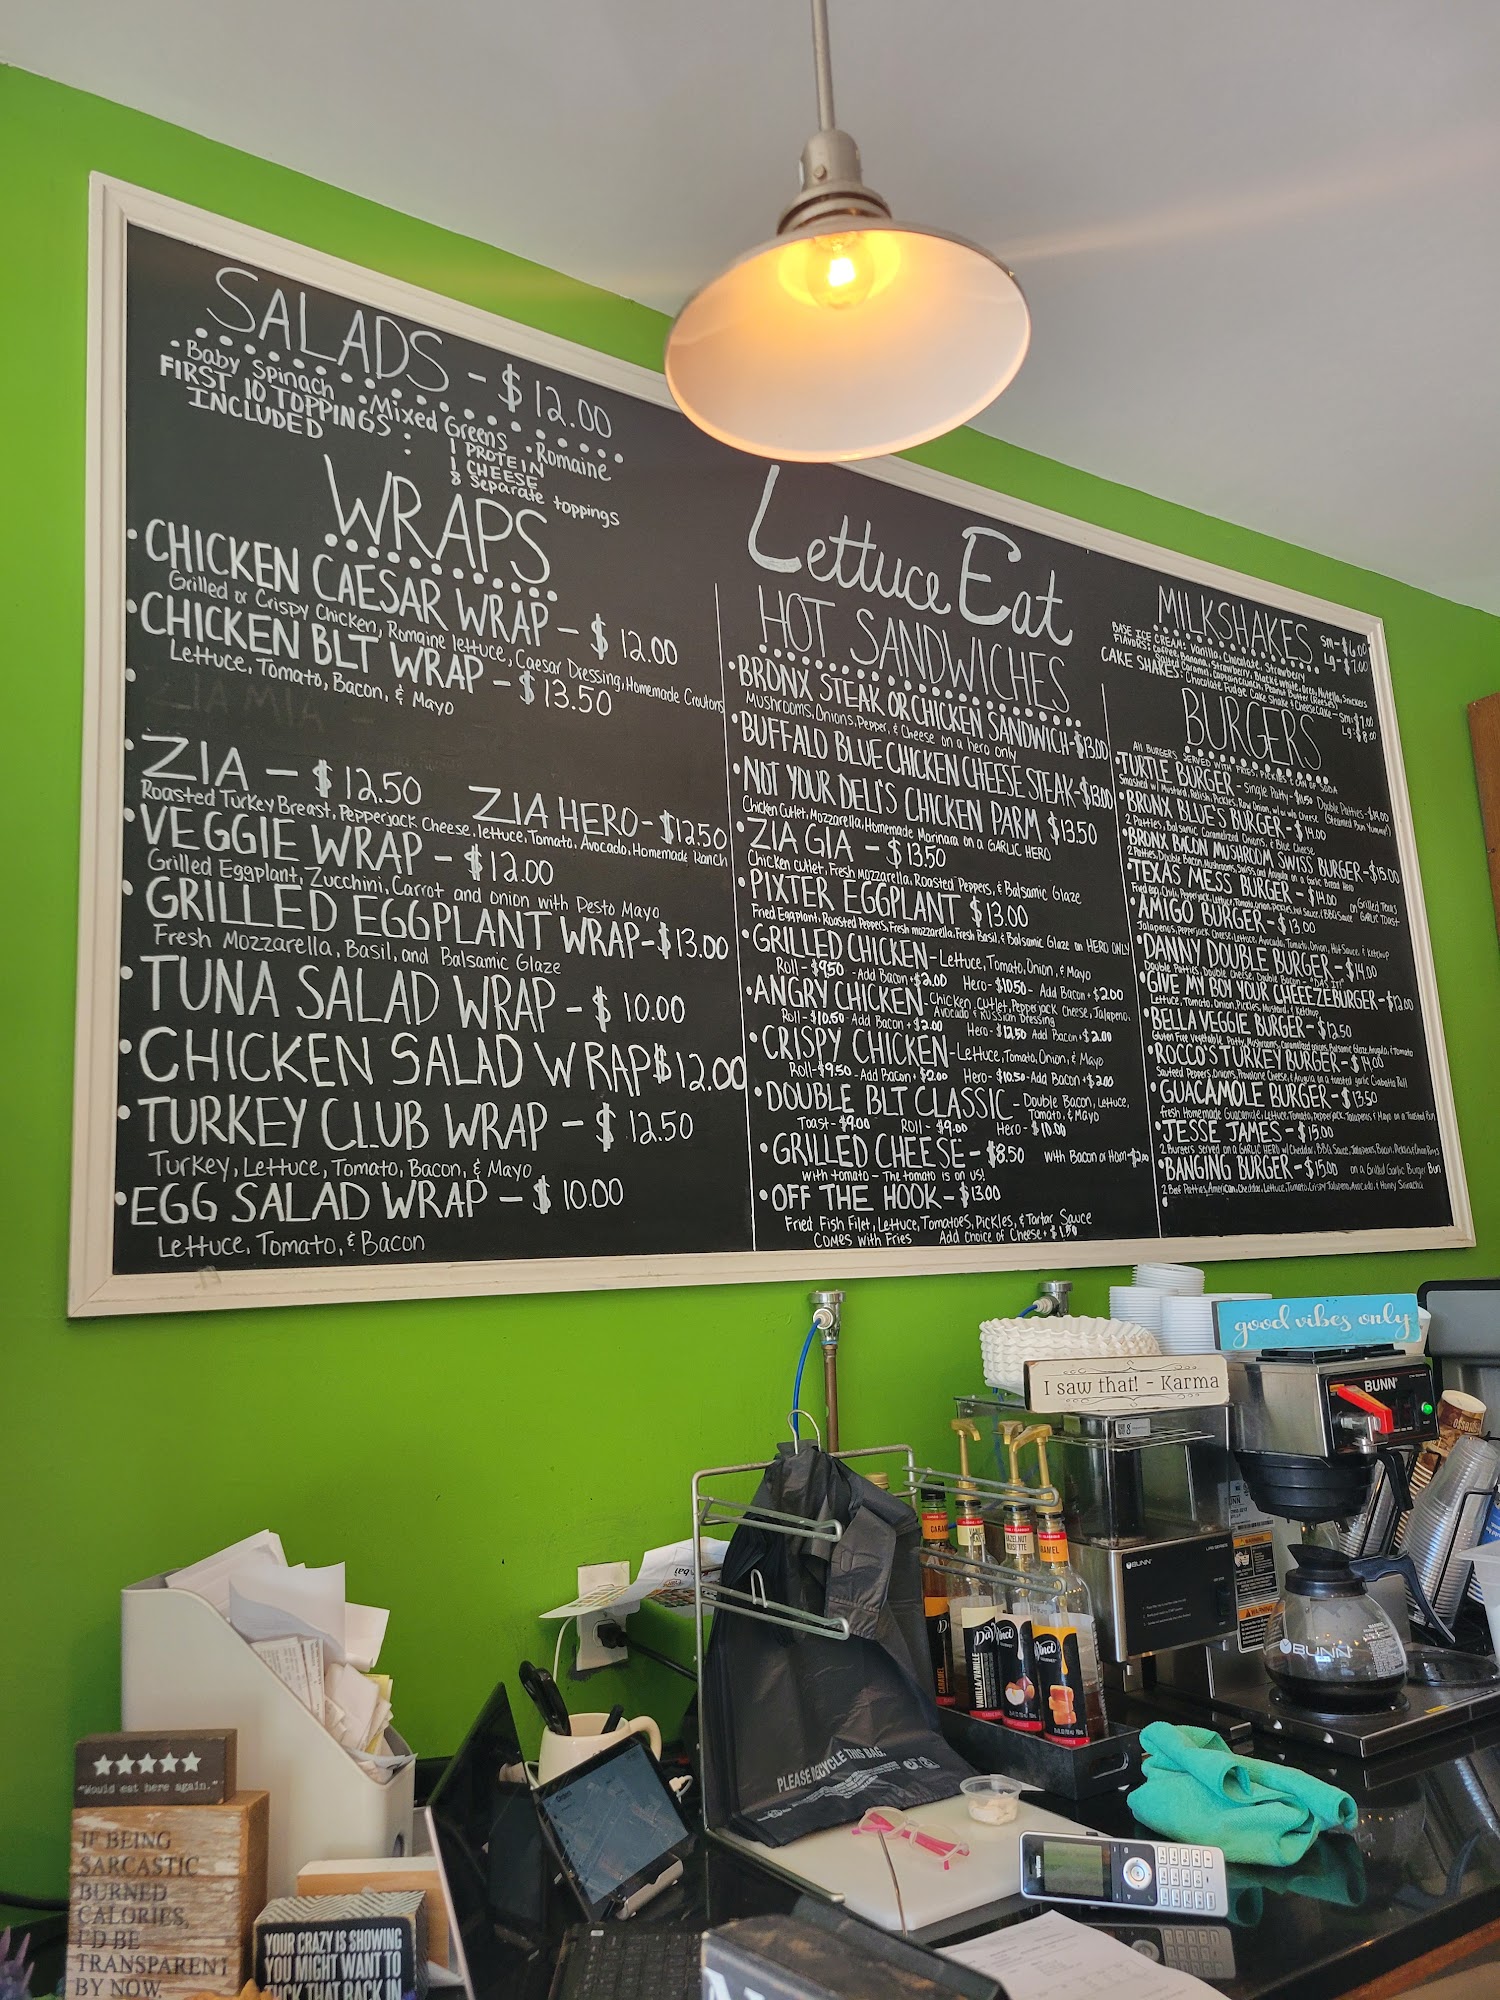 SALADS - $12.00
• Baby Spinach • Mixed Greens • Romaine
FIRST 10 TOPPINGS :
INCLUDED
1 PROTEIN
1 CHEESE
8 Separate toppings
WRAPS
• CHICKEN CAESAR WRAP - $ 12.00
Grilled or Crispy Chicken, Romaine lettuce, Caesar Dressing, Homemade Croutons
• CHICKEN BLT WRAP - $ 13.50
Lettuce, Tomato, Bacon, & Mayo
• ZIA - $ 12.50
ZIA HERO - $12.50
Roasted Turkey Breast, Pepperjack Cheese, lettuce, Tomato, Avocado, Homemade Ranch
• VEGGIE WRAP - $12.00
Grilled Eggplant, Zucchini, Carrot and onion with Pesto Mayo
• GRILLED EGGPLANT WRAP - $13.00
Fresh Mozzarella, Basil, and Balsamic Glaze
• TUNA SALAD WRAP - $ 10.00
• CHICKEN SALAD WRAP $12.00
• TURKEY CLUB WRAP - $ 12.50
Turkey, Lettuce, Tomato, Bacon, & Mayo
• EGG SALAD WRAP - $ 10.00
Lettuce, Tomato, & Bacon
Lettuce Eat
HOT SANDWICHES
• BRONX STEAK OR CHICKEN SANDWICH - $13.00
Mushrooms, Onions, Pepper, & Cheese on a hero only
• BUFFALO BLUE CHICKEN CHEESE STEAK - $13.00
• NOT YOUR DELI'S CHICKEN PARM $13.50
Chicken Cutlet, Mozzarella, Homemade Marinara on a GARLIC HERO
• ZIA GIA - $13.50
Chicken cutlet, Fresh Mozzarella, Roasted Peppers, & Balsamic Glaze
• PIXTER EGGPLANT $13.00
Fried Eggplant, Roasted Peppers, Fresh mozzarella, Fresh Basil, & Balsamic Glaze on HERO ONLY
• GRILLED CHICKEN - Lettuce, Tomato, Onion, & Mayo
Roll - $9.50 - Add Bacon + $2.00 Hero - $10.50 - Add Bacon + $2.00
• ANGRY CHICKEN - Chicken Cutlet, Pepperjack Cheese, Jalapeno,
Avocado & Russian Dressing
Roll - $10.50 Add Bacon + $2.00 Hero - $12.50 Add Bacon + $2.00
• CRISPY CHICKEN - Lettuce, Tomato, Onion, & Mayo
Roll - $9.50 - Add Bacon + $2.00 Hero - $10.50 - Add Bacon + $2.00
• DOUBLE BLT CLASSIC - Double Bacon, Lettuce,
Tomato, & Mayo
Toast - $9.00 Roll - $9.00 Hero - $10.00
• GRILLED CHEESE - $8.50 with Bacon or Ham - $2.00
with tomato - The tomato is on us!
• OFF THE HOOK - $13.00
Fried Fish Filet, Lettuce, Tomatoes, Pickles, & Tartar Sauce
Comes with Fries Add choice of Cheese + $1.50
MILKSHAKES Sm - $6.00
Lg - $7.00
BASE ICE CREAM: Vanilla, Chocolate, Strawberry
FLAVORS: Coffee, Banana, Strawberry, Black & White, Oreo, Nutella, Snickers
Salted Caramel, Captain Crunch, Peanut Butter (Reese's)
CAKE SHAKES: Chocolate Fudge Cake Shake & Cheese Cake - Sm: $7.00
Lg: $8.00
BURGERS
All BURGERS SERVED WITH FRIES, PICKLES & CAN OF SODA
• TURTLE BURGER - Single Patty - $11.50 Double Patties - $14.00
Smashed w/ Mustard, Relish, Pickles, Raw Onion, w/ or w/o Cheese (Steamed Bun Yummy!)
• BRONX BLUE'S BURGER - $14.00
2 Patties, Balsamic Caramelized Onions, & Blue Cheese
• BRONX BACON MUSHROOM SWISS BURGER - $15.00
2 Patties, Double Bacon, Mushrooms, Swiss, and Arugula on a Garlic Bread Hero
• TEXAS MESS BURGER - $14.00 on Grilled Texas
GARLIC TOAST
• AMIGO BURGER - $13.00
Jalapenos, Pepperjack Cheese, Lettuce, Avocado, Tomato, Onion, Hot Sauce, & Ketchup
• DANNY DOUBLE BURGER - $14.00
Double Patties, Double Cheese, Double Bacon - "DAS IT!"
• GIVE MY BOY YOUR CHEEEZEBURGER - $12.00
Lettuce, Tomato, Onion, Pickles, Mustard, & Ketchup
• BELLA VEGGIE BURGER - $12.50
Gluten Free Vegetable Patty, Mushrooms, Caramelized onions, Balsamic Glaze, Arugula, & Tomato
• ROCCO'S TURKEY BURGER - $14.00
Sauteed Peppers, Onions, Provolone Cheese, & Arugula on a toasted garlic Ciabatta Roll
• GUACAMOLE BURGER - $13.50
Fresh Homemade Guacamole, Lettuce, Tomato, Pepperjack, Jalapenos, & Mayo on a Toasted Bun
• JESSE JAMES - $15.00
2 Burgers served on a GARLIC HERO w/ Cheddar, BBQ Sauce, Jalapenos, Bacon, Pickles, & Onion Rings
• BANGING BURGER - $15.00 on a Grilled Garlic Burger Bun
2 Beef Patties, American, Cheddar, Lettuce, Tomato, Crispy Jalapeno, Avocado, & Honey Sriracha
good vibes only
I saw that! - Karma
BUNN
BUNN
BUNN
CARAMEL
VANILLA/VANILLE
HAZELNUT
NOISETTE
CARAMEL
DaVinci
PLEASE RECYCLE THIS BAG.
verizon
"Would eat here again."
IF BEING
SARCASTIC
BURNED
CALORIES,
I'D BE
TRANSPARENT
BY NOW.
YOUR CRAZY IS SHOWING
YOU MIGHT WANT TO
TUCK THAT BACK IN